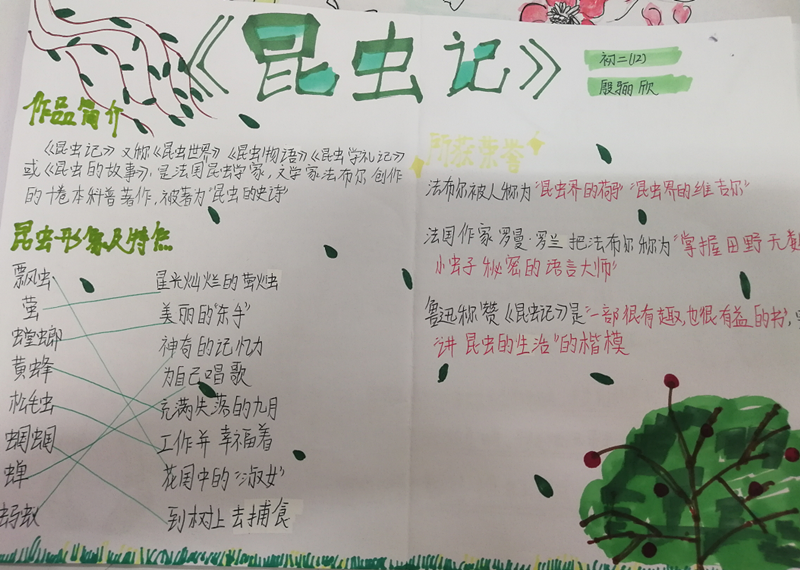 《昆虫记》
初二(12)
殷骊欣
作品简介
《昆虫记》又称《昆虫世界》《昆虫物语》《昆虫学札记》
或《昆虫的故事》，是法国昆虫学家，文学家法布尔创作
的十卷本科普著作，被著为"昆虫的史诗"
昆虫形象及特点
瓢虫
萤
螳螂
黄蜂
松毛虫
蝈蝈
蝉
蚂蚁
星光灿烂的萤火虫
美丽的"杀手"
神奇的记忆力
为自己唱歌
充满失落的九月
工作并幸福着
花园中的"淑女"
到树上去捕食
所获荣誉
法布尔被人称为"昆虫界的荷马""昆虫界的维吉尔"
法国作家罗曼·罗兰把法布尔称为"掌握田野无数
小虫子秘密的语言大师"
鲁迅称赞《昆虫记》是"一部很有趣,也很有益的书,
"讲昆虫的生活"的楷模